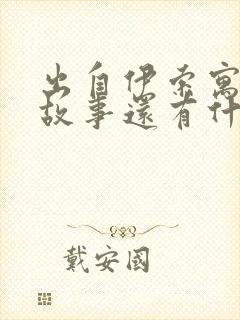 出自伊索寓
故事還有什
戴安國